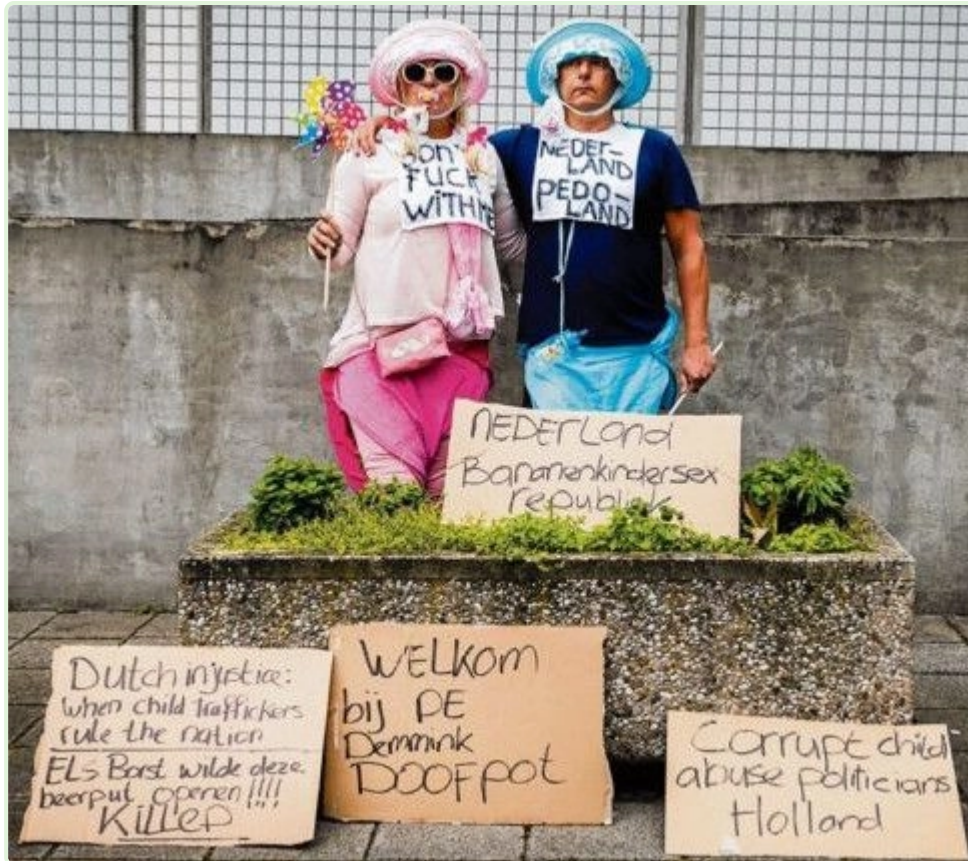 DON'T
FUCK
WITH ME
NEDER-
LAND
PEDO-
LAND
NEDERLAND
Bananenkindersex
republiek
Dutch injustice:
when child traffickers
rule the nation
ELs Borst wilde deze
beerput openen!!!!
KILLED
WELKOM
bij DE
Demmink
DOOFpot
Corrupt child
abuse politicians
Holland